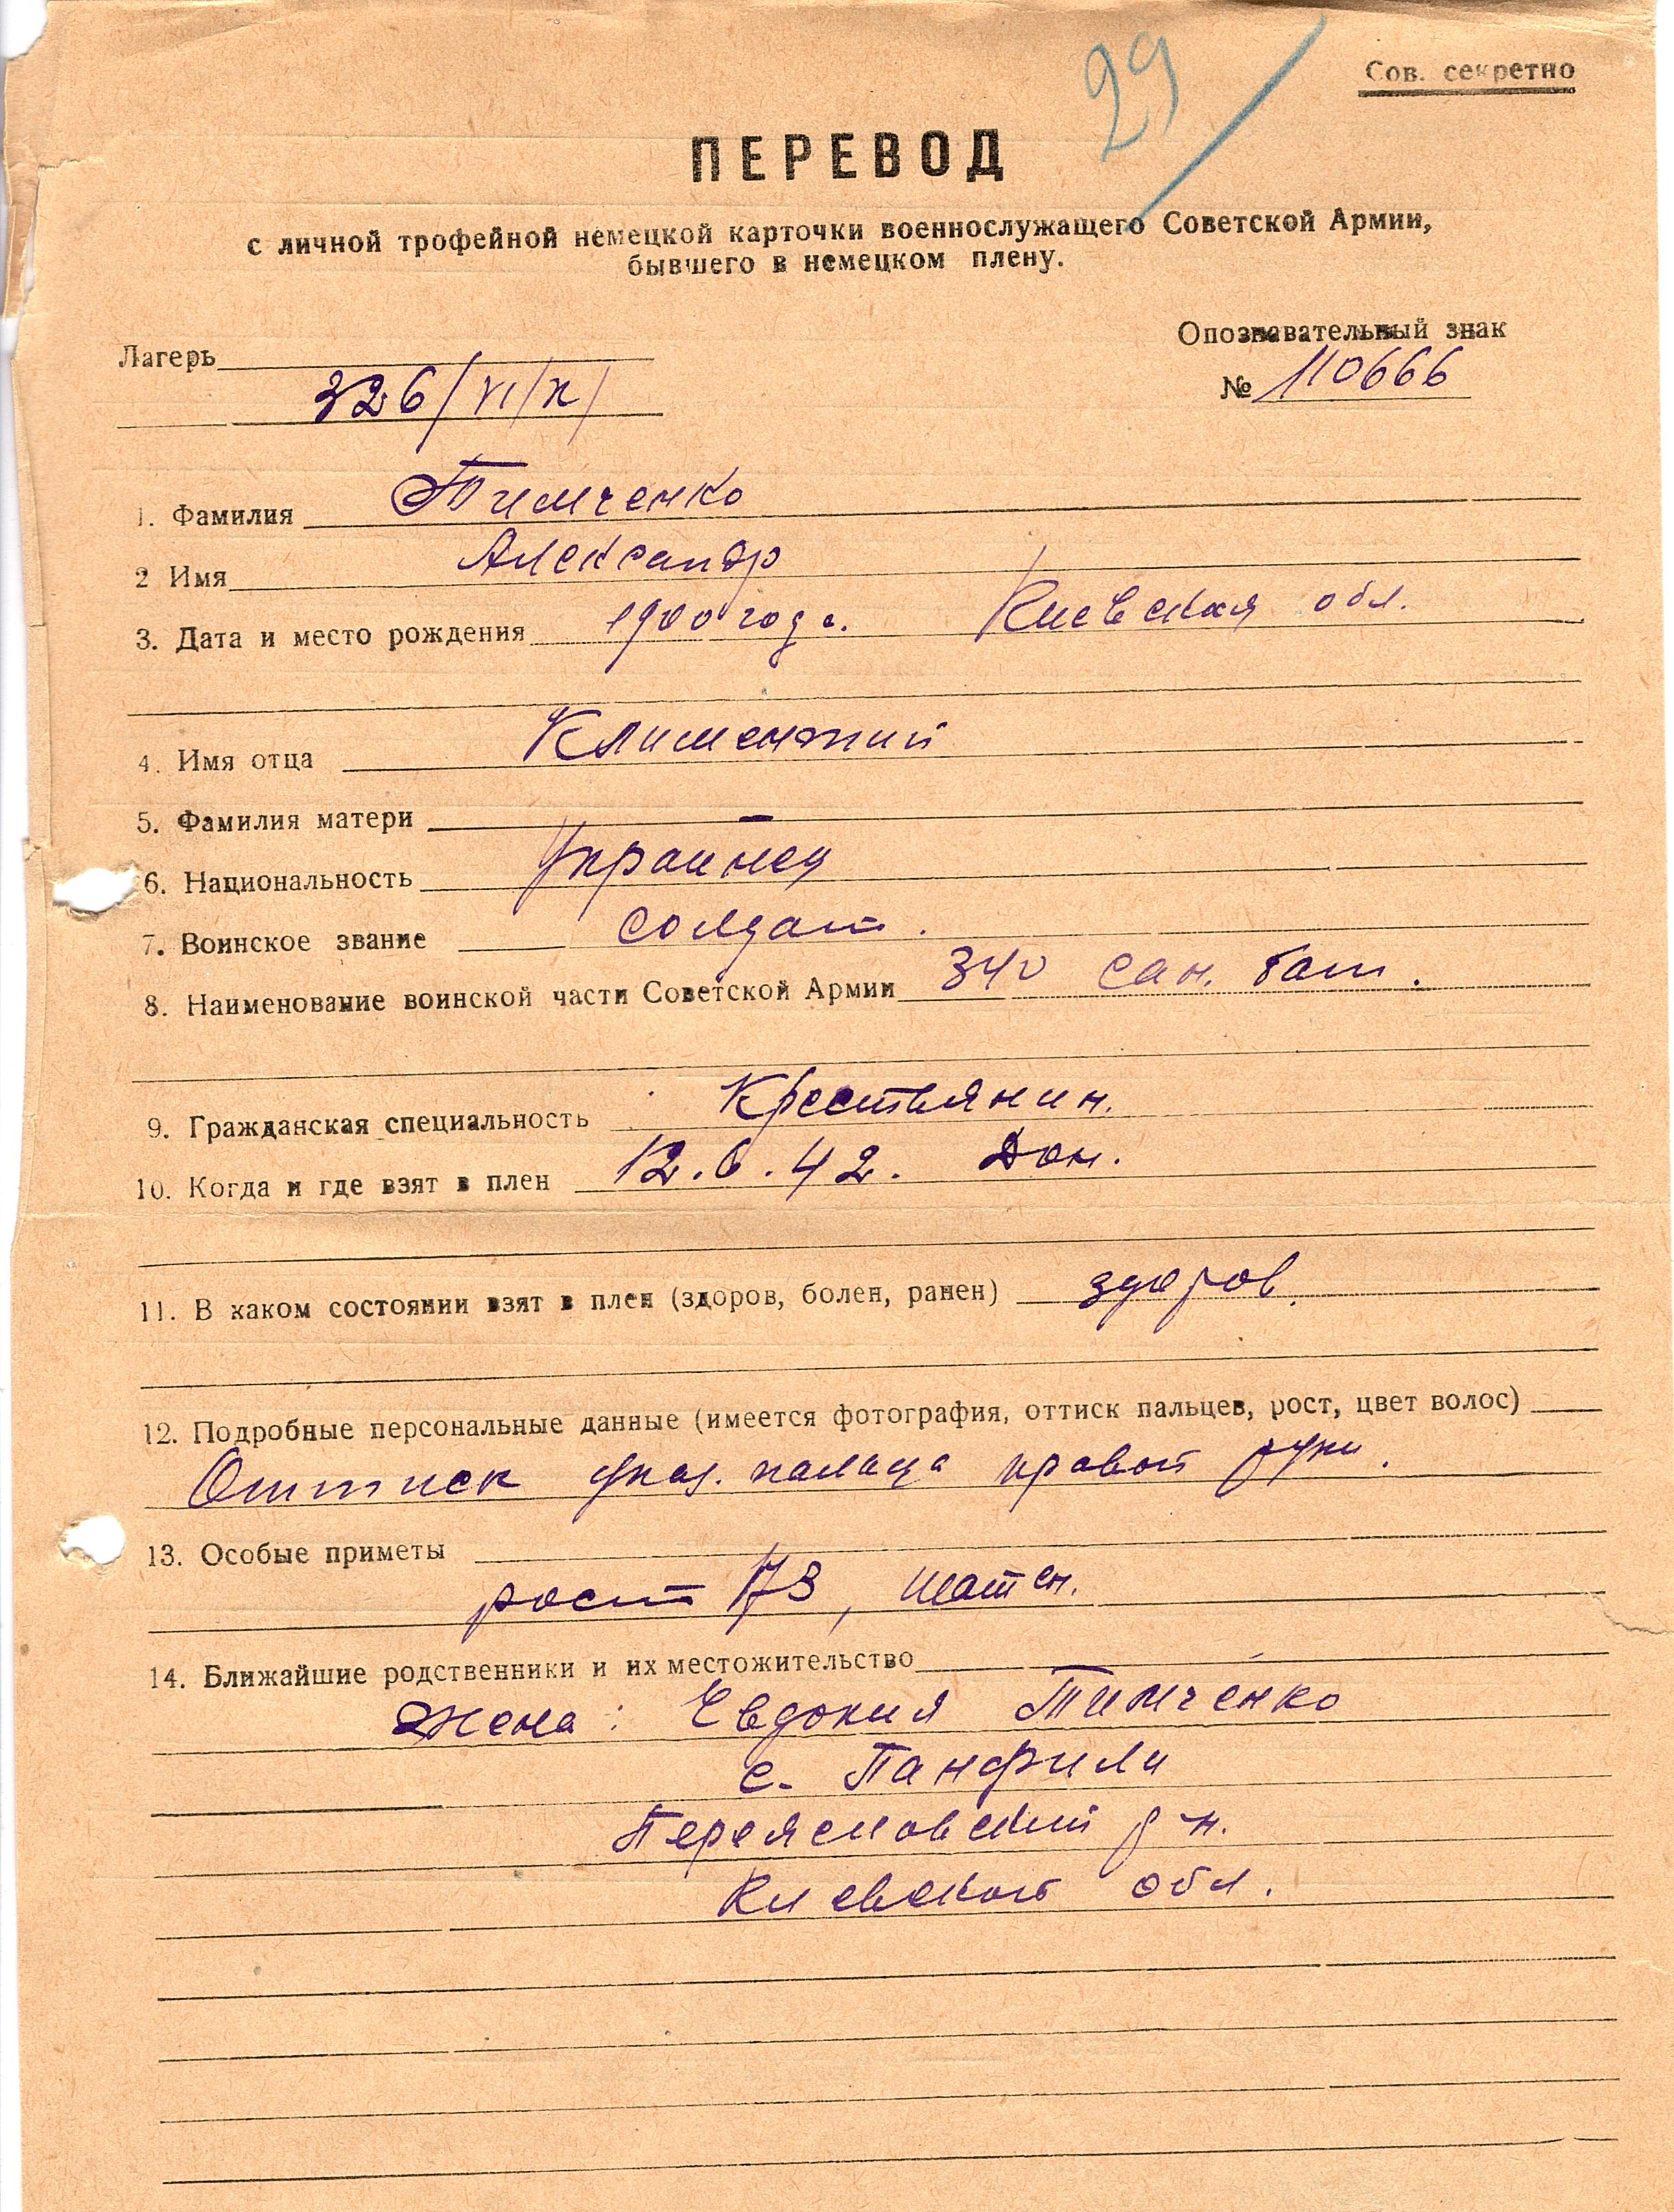 29
Сов. секретно
ПЕРЕВОД
с личной трофейной немецкой карточки военнослужащего Советской Армии,
бывшего в немецком плену.
Опознавательный знак
Лагерь
326/VI/К/
№ 110666
1. Фамилия Тимченко
2 Имя Александр
3. Дата и место рождения 1900 года. Киевская обл.
4. Имя отца Климентий
5. Фамилия матери —
6. Национальность Украинец
7. Воинское звание солдат.
8. Наименование воинской части Советской Армии 340 сан. бат.
9. Гражданская специальность Крестьянин.
10. Когда и где взят в плен 12.6.42. Дон.
11. В каком состоянии взят в плен (здоров, болен, ранен) здоров.
12. Подробные персональные данные (имеется фотография, оттиск пальцев, рост, цвет волос)
Оттиск указ. пальца правой руки.
13. Особые приметы
рост 173, шатен.
14. Ближайшие родственники и их местожительство
Жена: Евдокия Тимченко
с. Панфили
Переясловский р-н.
Киевской обл.